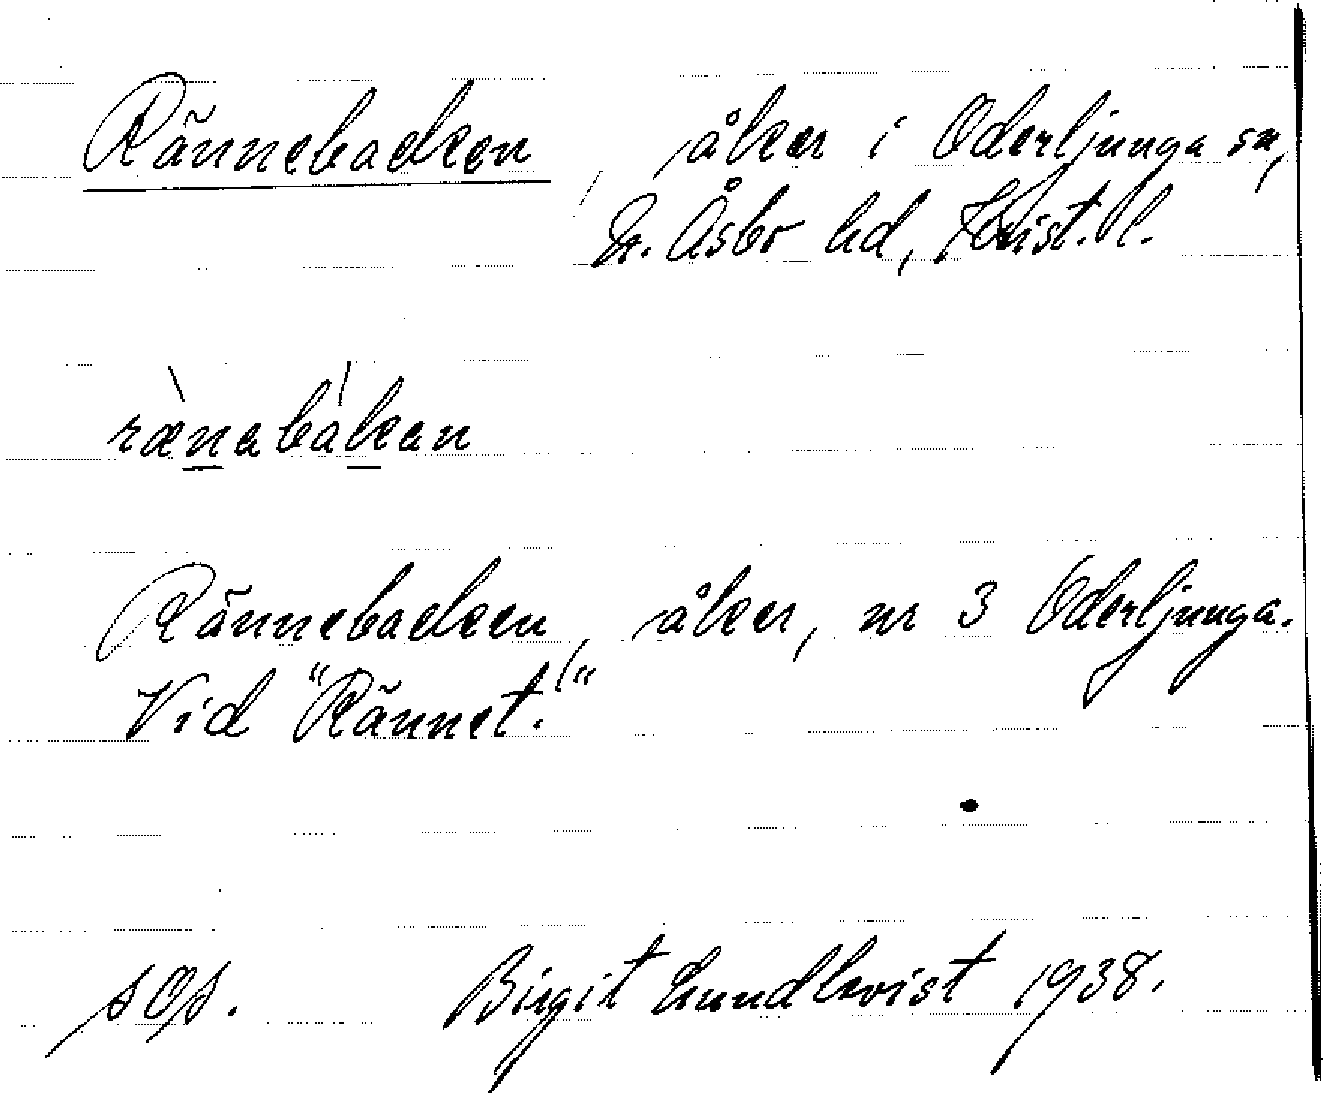 Rännebacken, åker i Oderljunga sn,
N. Åsbo hd, Krist. l.
rænabakan
Rännebacken, åker, nr 3 Oderljunga.
Vid "Rännet."
Birgit Lundkvist 1938.